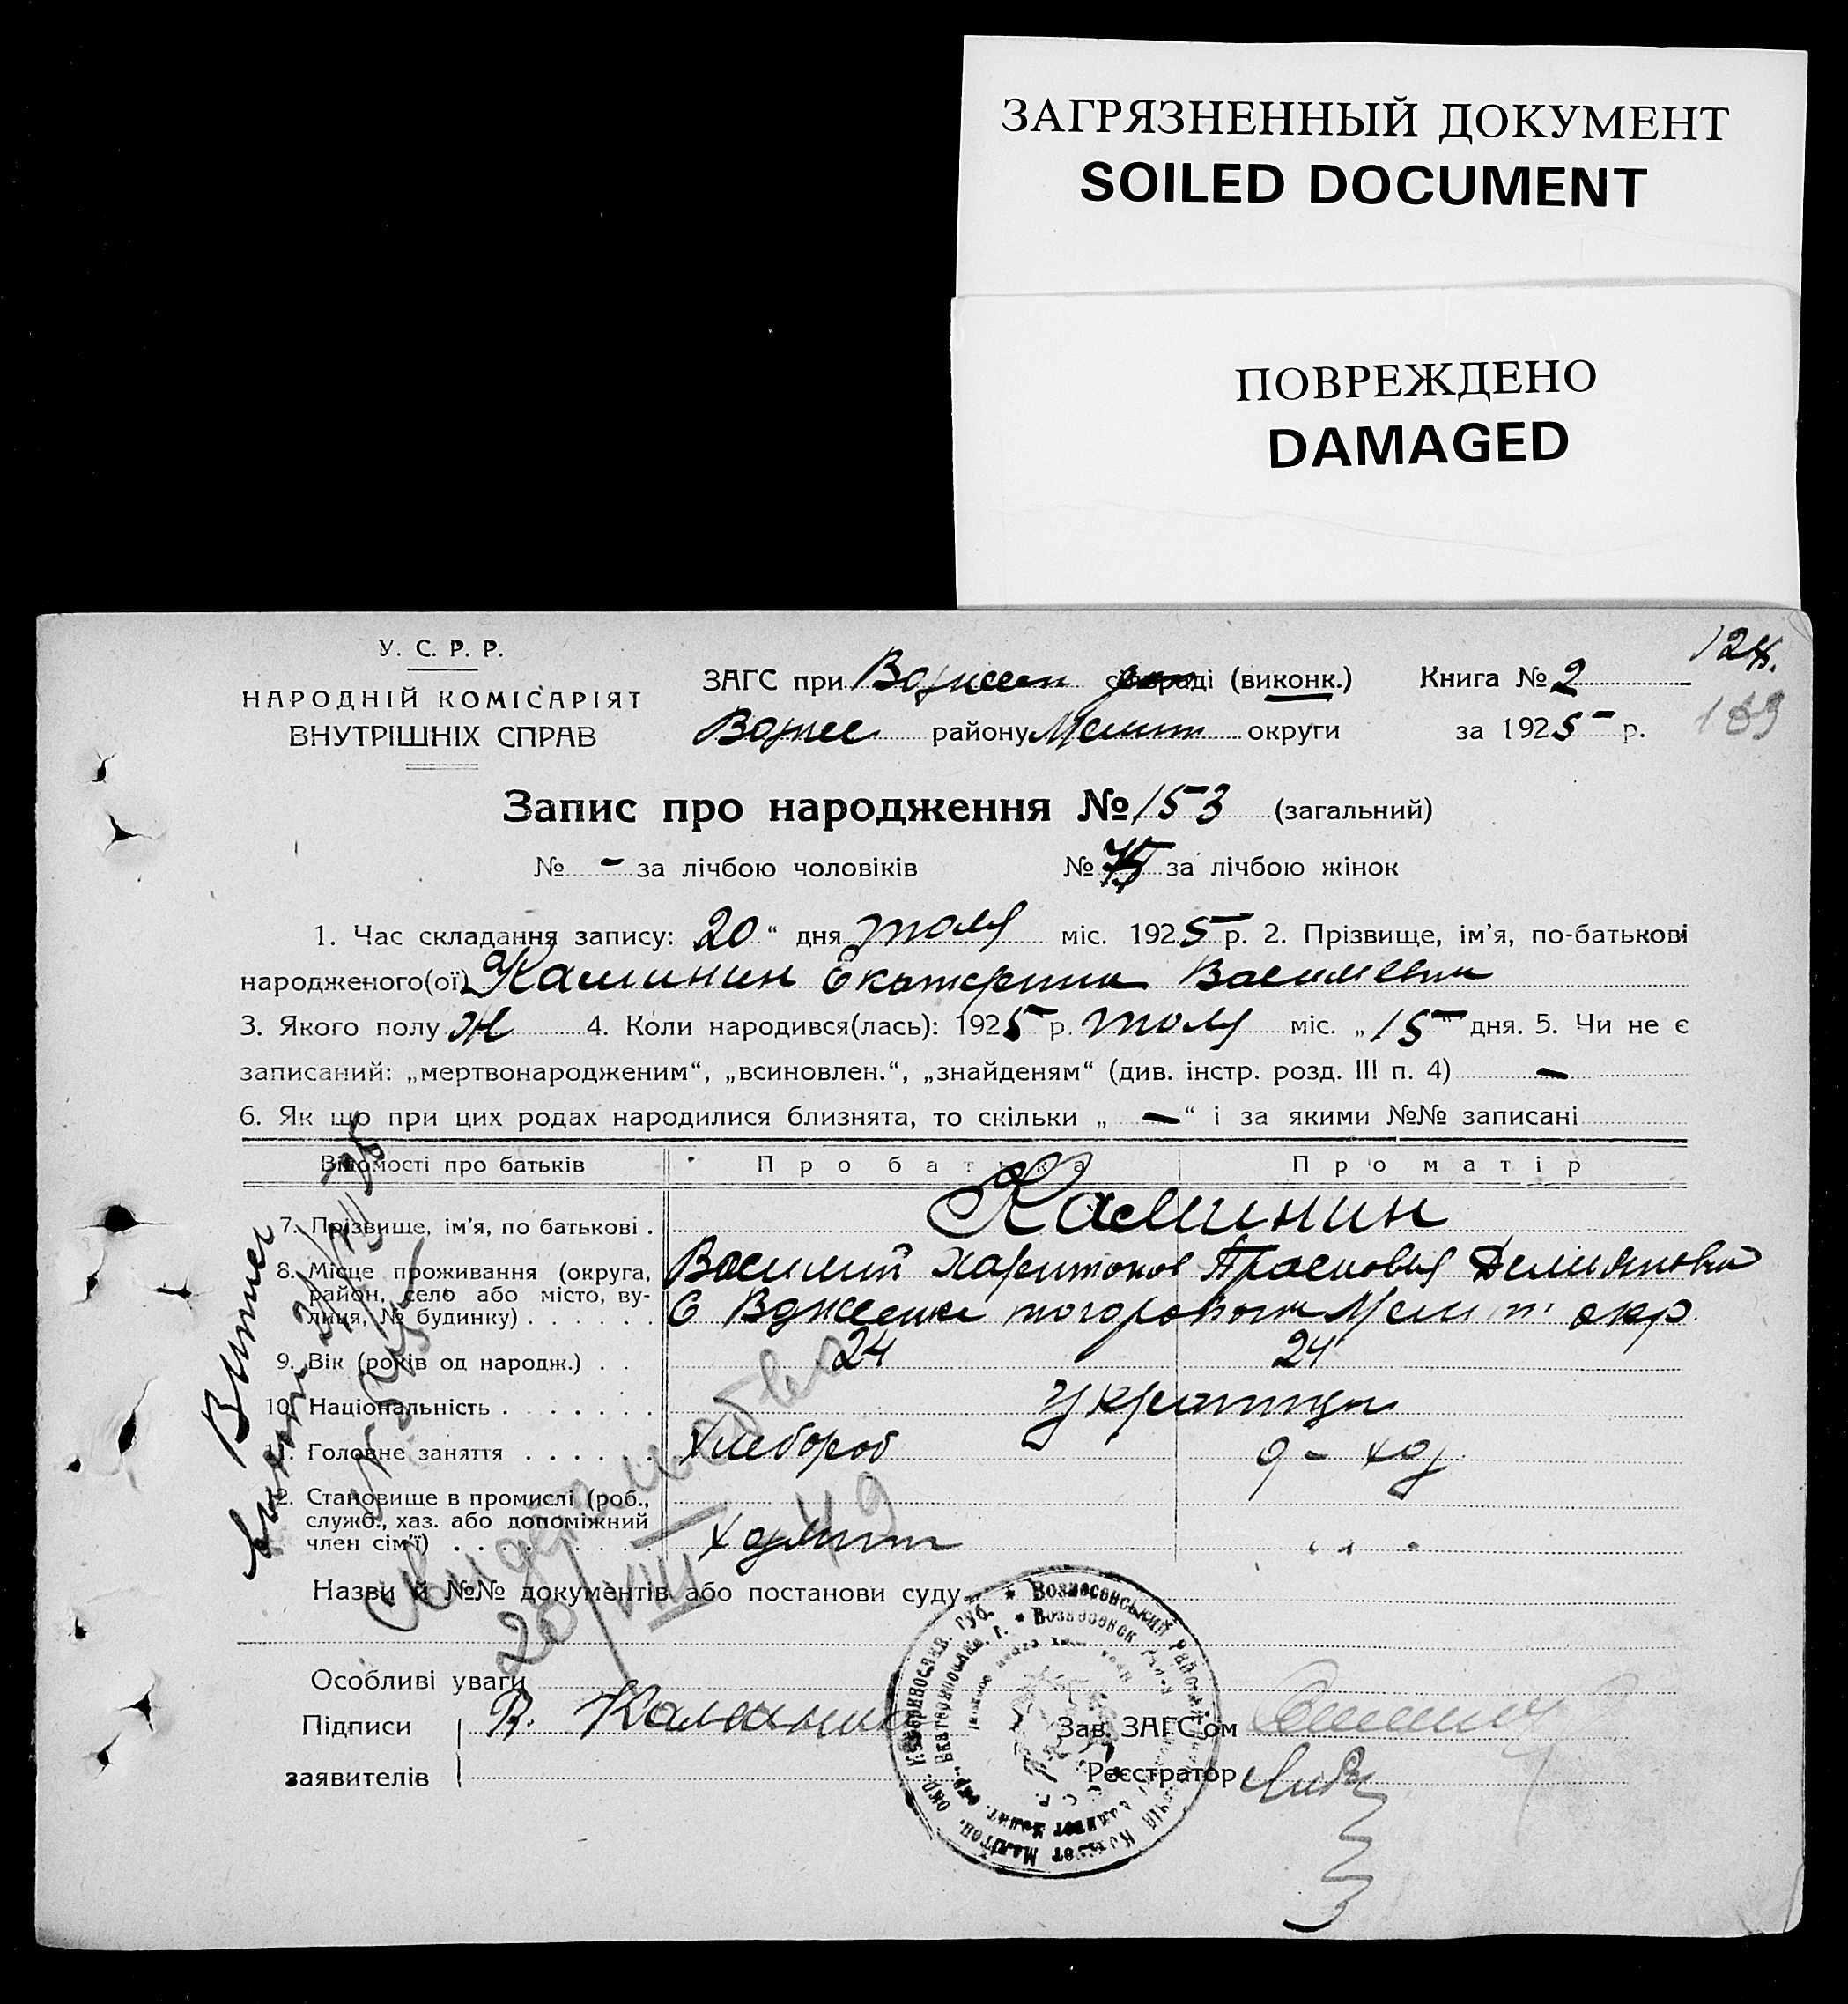 ЗАГРЯЗНЕННЫЙ ДОКУМЕНТ
SOILED DOCUMENT
ПОВРЕЖДЕНО
DAMAGED
124.
189
У. С. Р. Р.
НАРОДНІЙ КОМІСАРІЯТ
ВНУТРІШНІХ СПРАВ
ЗАГС при (виконк.) Книга № 2
району Мелит округи за 1925 р.
Запис про народження № 153 (загальний)
№ - за лічбою чоловіків № 75 за лічбою жінок
1. Час складання запису: 20 " дня июля міс. 1925 р. 2. Прізвище, ім'я, по-батькові
народженого(ої) Калинин Екатерина Васильевна
3. Якого полу Ж 4. Коли народився(лась): 1925 р. июля міс. „ 15 " дня. 5. Чи не є
записаний: „мертвонародженим“, „всиновлен.“, „знайденям“ (див. інстр. розд. III п. 4) -
6. Як що при цих родах народилися близнята, то скільки „ - “ і за якими №№ записані
Відомості про батьків Про батька Про матір
7. Прізвище, ім'я, по батькові . Калинин
8. Місце проживання (округа, Василий Харитонов Прасковья Демьяновна
район, село або місто, ву-
лиця, № будинку) . . . . . . С Вознесенка Мелит окр.
9. Вік (років од народж.) . . 24 24
10. Національність . . . . . . . Украинцы
11. Головне заняття . . . . . . Хлебороб д - хоз
12. Становище в промислі (роб.,
служб., хаз. або допоміжний
член сім'ї) . . . . . . . . .
Назви й №№ документів або постанови суду
Особливі уваги
Підписи В. Калинин Зав. ЗАГС'ом
заявителів Реєстратор
Свидетельство
20/VIII 49